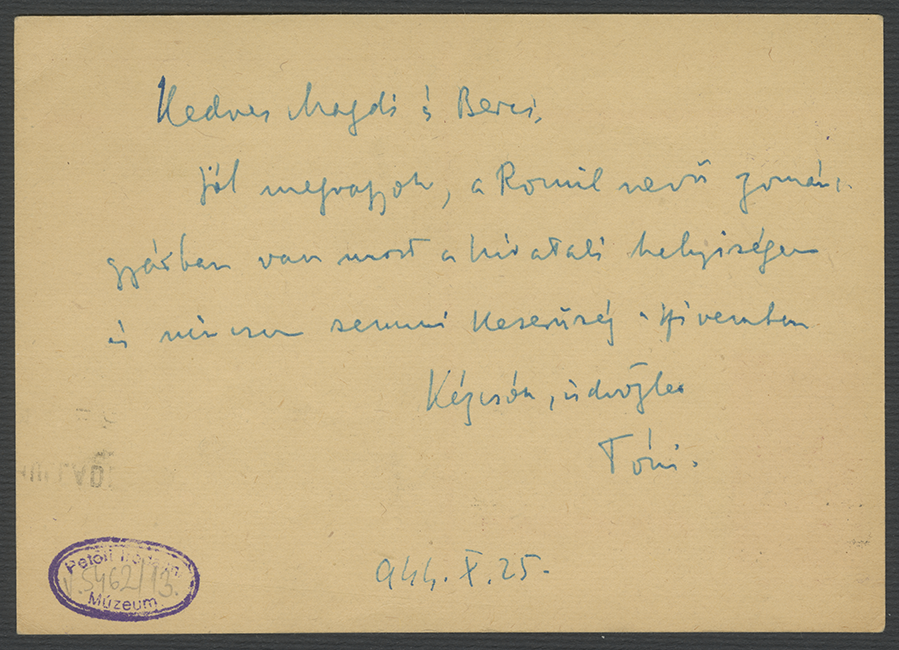 Kedves Magdi és Berci,
Jól megvagyok, a Romil nevű zománc
gyárban van most a hivatali helyiségem
és nincsen semmi keserűség a szivemben
Kézcsók, üdvözlet
Tóni.
944. X. 25.
Petőfi Irodalmi
V.5462/13.
Múzeum